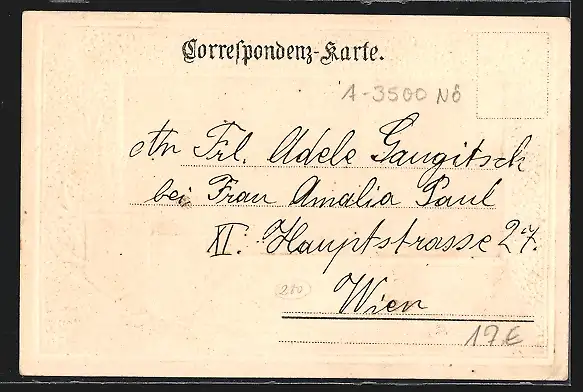 Correspondenz-Karte.
A-3500 NÖ
An Frl. Adele Gaugitsch
bei Frau Amalia Paul
XI. Hauptstrasse 27.
Wien
280
17 €